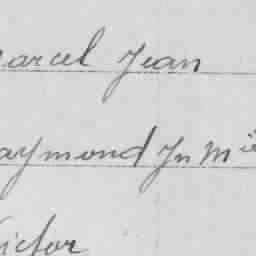 arcel Jean
aymond Jn Mie
ictor